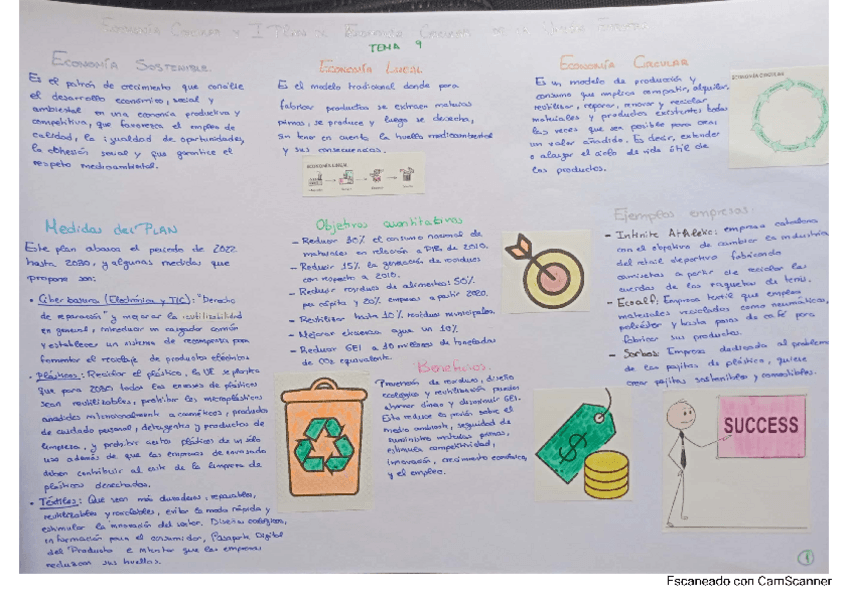 Economía Circular y I Plan de Economía Circular de la Unión Europea
TEMA 9
Economía Sostenible
Es el patrón de crecimiento que concilie
el desarrollo económico, social y
ambiental en una economía productiva y
competitiva, que favorezca el empleo de
calidad, la igualdad de oportunidades,
la cohesión social y que garantice el
respeto medioambiental.
Economía Lineal
Es el modelo tradicional donde para
fabricar productos se extraen materias
primas, se produce y luego se desecha,
sin tener en cuenta la huella medioambiental
y sus consecuencias.
Economía Circular
Es un modelo de producción y
consumo que implica compartir, alquilar,
reutilizar, reparar, renovar y reciclar
materiales y productos existentes todas
las veces que sea posible para crear
un valor añadido. Es decir, extender
o alargar el ciclo de vida útil de
los productos.
Medidas del PLAN
Este plan abarca el periodo de 2022
hasta 2030, y algunas medidas que
propone son:
• (Electrónica y TIC): "Derecho
de reparación" y mejorar la reutilización
en general, introducir un cargador común
y establecer un sistema de recompensa para
fomentar el reciclaje de productos eléctricos
• Plásticos: Reciclar el plástico, la UE se plantea
que para 2030 todos los envases de plásticos
sean reutilizables, prohibir los microplásticos
añadidos intencionalmente a cosméticos, productos
de cuidado personal, detergentes y productos de
limpieza, y prohibir ciertos plásticos de un sólo
uso además de que las empresas de
deben contribuir al coste de la limpieza de
plásticos desechados.
• Téxtiles: Que sean más duraderos, reparables,
reutilizables y reciclables, evitar la moda rápida y
estimular la innovación del sector. Diseños ecológicos,
información para el consumidor, Pasaporte Digital
del Producto e intentar que las empresas
reduzcan sus huellas.
Objetivos cuantitativos
- Reducir 30% el consumo nacional de
materiales en relación a PIB de 2010.
- Reducir 15% la generación de residuos
con respecto a 2010.
- Reducir residuos de alimentos: 50%
per cápita y 20% empresas a partir 2020.
- Reutilizar hasta 10% residuos municipales
- Mejorar eficiencia agua un 10%
- Reducir GEI a 10 millones de toneladas
de CO2 equivalente.
Beneficios.
Prevención de residuos, diseño
ecológico y reutilización pueden
ahorrar dinero y disminuir GEI.
Esto reduce la presión sobre el
medio ambiente, seguridad de
suministro materias primas,
estimula competitividad,
innovación, crecimiento económico,
y el empleo.
Ejemplos empresas:
- Infinite Athletic: empresa catalana
con el objetivo de cambiar la industria
del retail deportivo fabricando
camisetas a partir de reciclar las
cuerdas de las raquetas de tenis.
- Ecoalf: Empresa textil que emplea
materiales reciclados como neumáticos,
poliéster y hasta posos de café para
fabricar sus productos.
- Sorbos: Empresa dedicada al problema
de las pajitas de plástico, quiere
crear pajitas sostenibles y comestibles.
SUCCESS
1
Escaneado con CamScanner